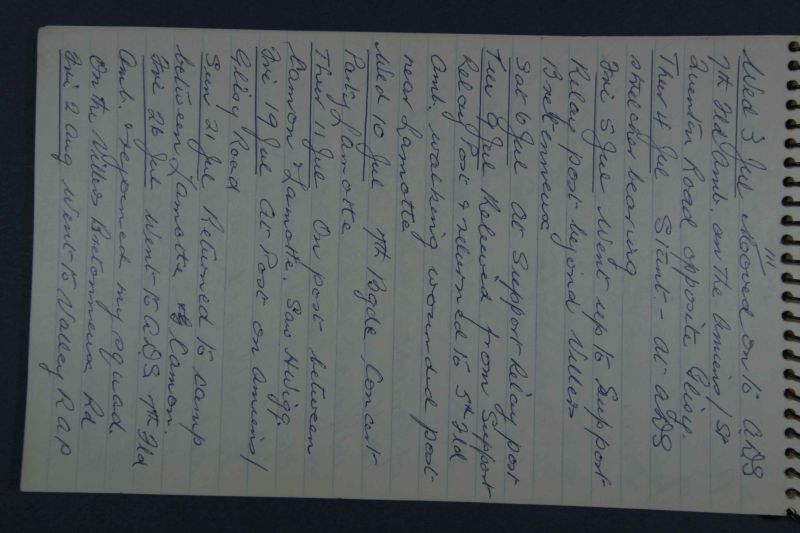 111
Wed 3 Jul Mooved on to ADS
7th Fld Amb. on the Amiens/St
Quentin Road opposite Glisy.
Thur 4 Jul Stunt - at ADS
stretcher bearing
Fri 5 Jul Went up to Support
Relay post beyond Villers
Bretenneux
Sat 6 Jul At Support Relay post
Tue 9 Jul Relieved from Support
Relay Post & returned to 5th Fld
Amb. walking wounded post
near Lamotte
Wed 10 Jul 7th Bgde Concert
Party Lamotte
Thur 11 Jul On post between
Camon & Lamotte. Saw H
Fri 19 Jul At Post on Amiens/
Glisy Road
Sun 21 Jul Returned to camp
between Lamotte & Camon.
Fri 26 Jul Went to ADS 7th Fld
Amb. & rejoined my squad.
On the Villers Bretonneux Rd
Fri 2 Aug Went to Valley RAP